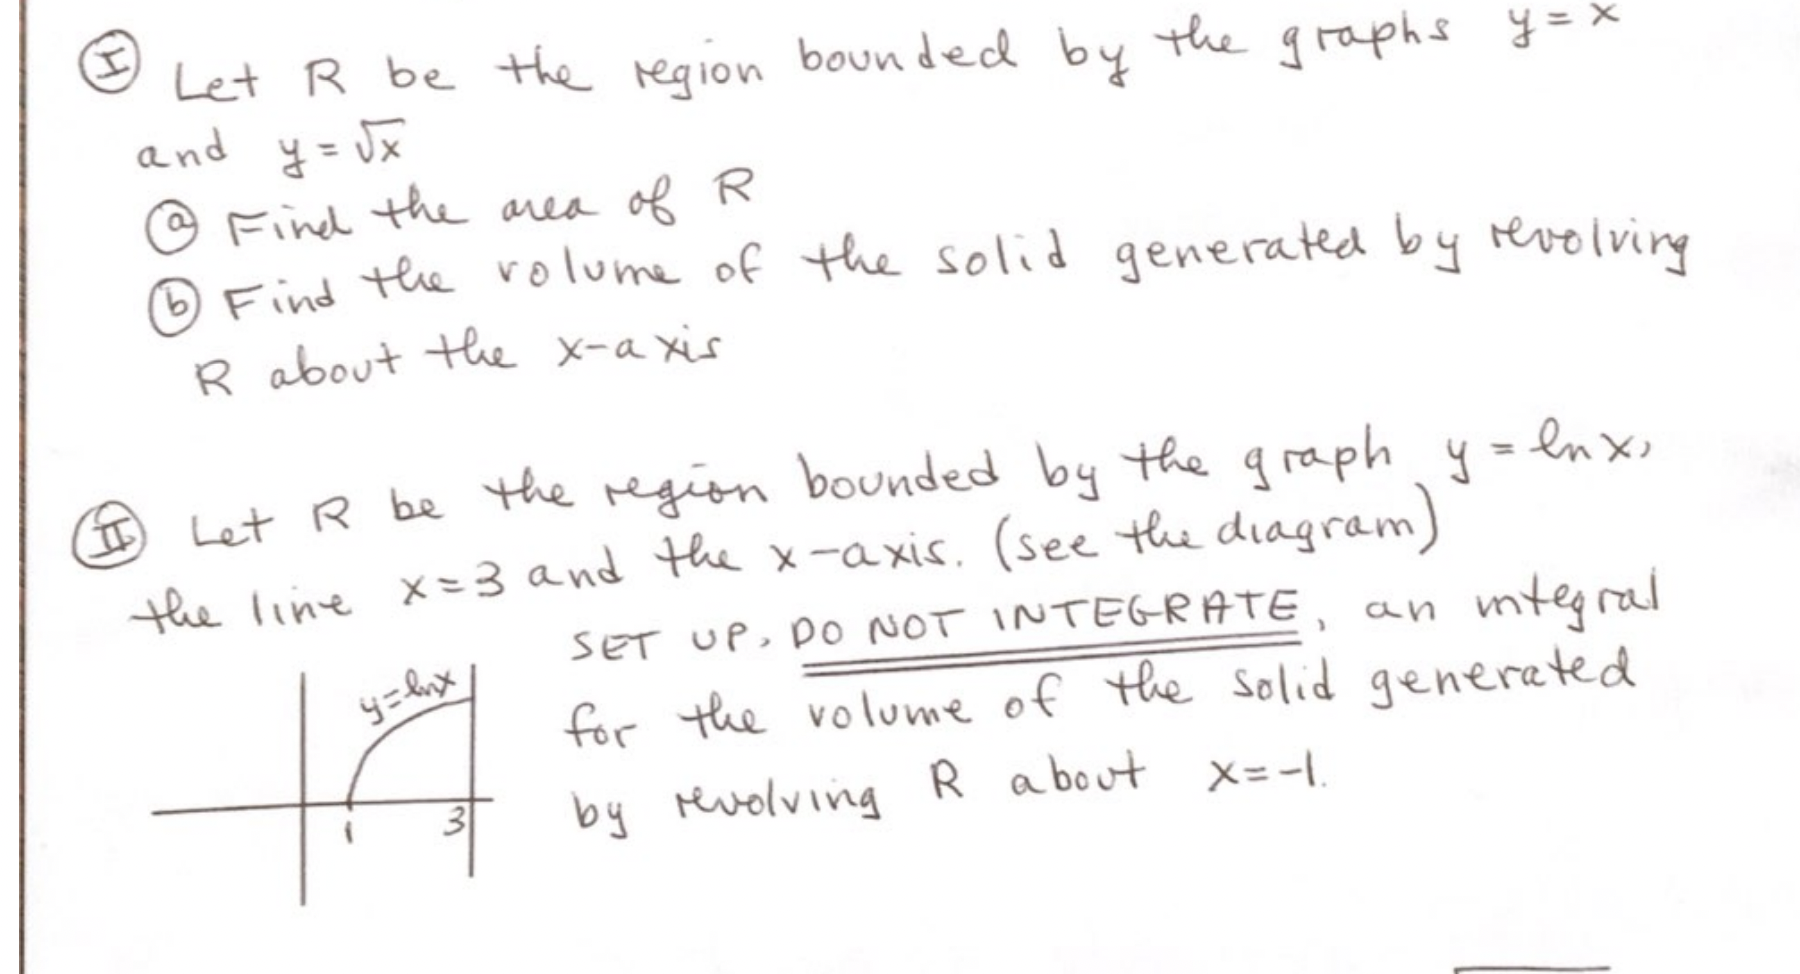 Ⓘ Let R be the region bounded by the graphs y = x
and y = √x
ⓐ Find the area of R
ⓑ Find the volume of the solid generated by revolving
R about the x-axis
Ⅱ Let R be the region bounded by the graph y = ln x,
the line x=3 and the x-axis. (see the diagram)
SET UP, DO NOT INTEGRATE, an integral
for the volume of the solid generated
by revolving R about x=-1.
y=lnx
1 3